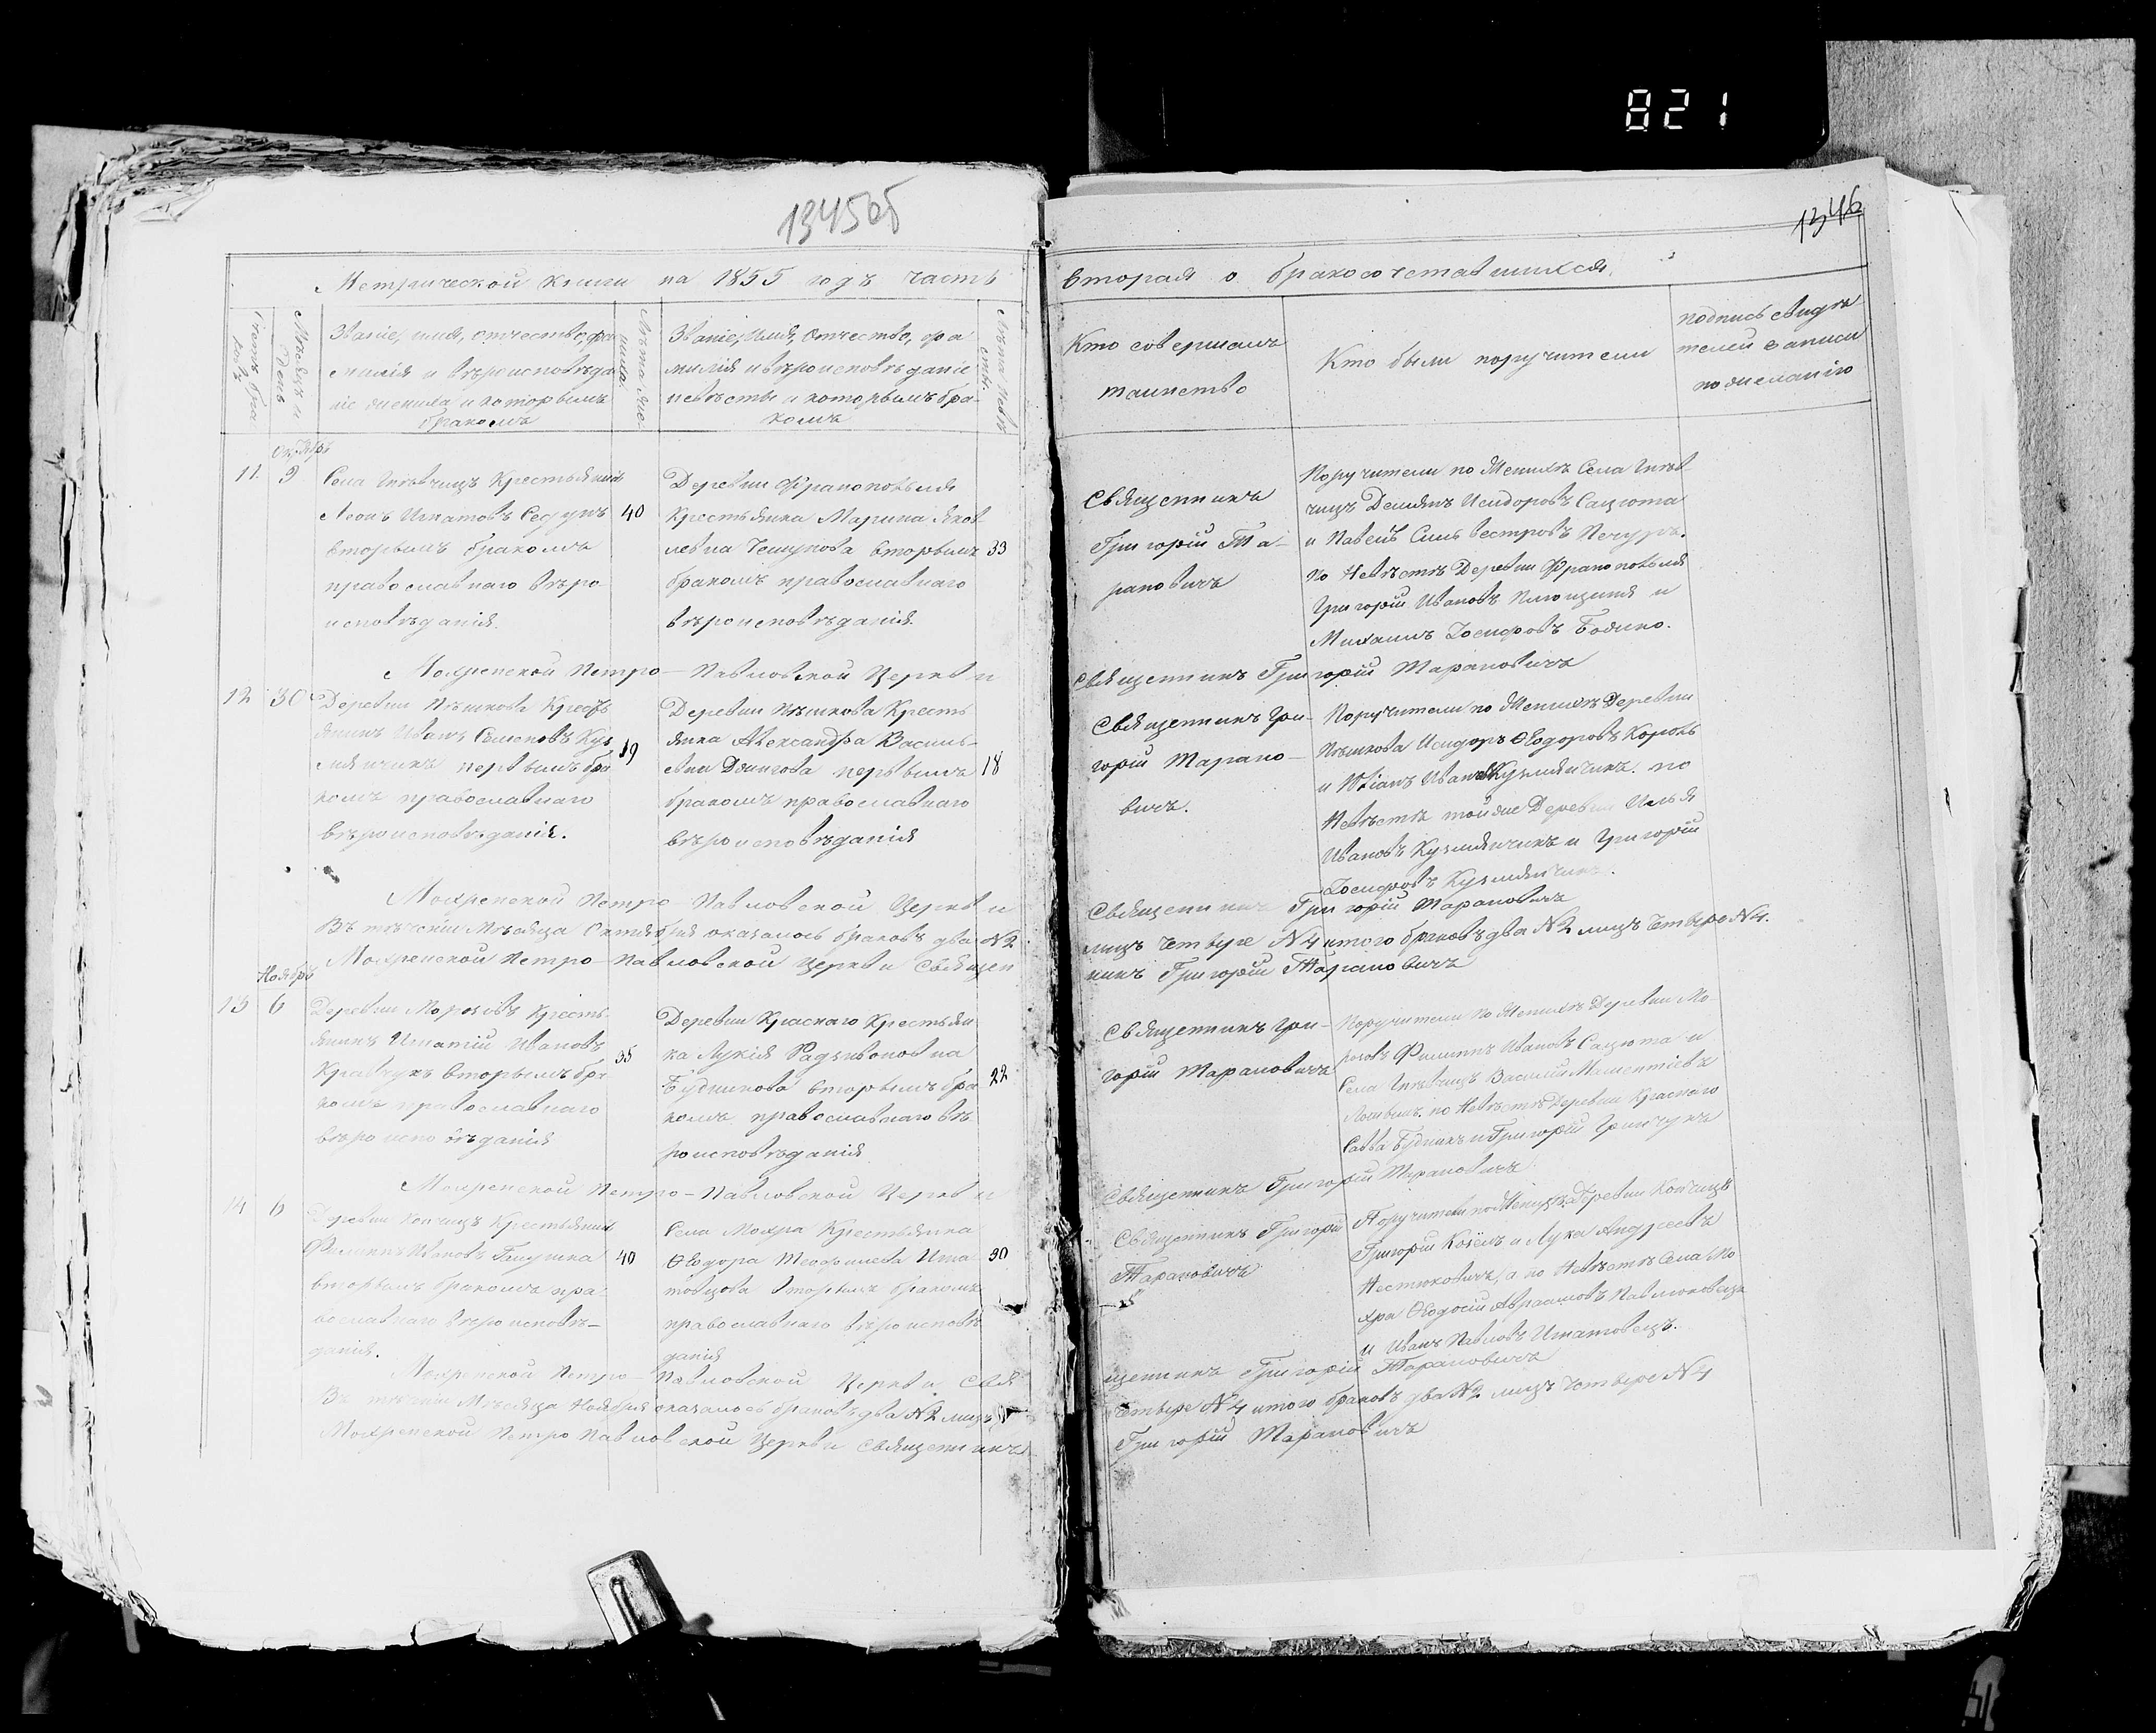 821
1345об
1346
Метрической книги на 1855 годъ часть
вторая о бракосочетавшихся
Мѣсяцъ и
День
Званіе, имя, отчество, фа
милія и вѣроисповѣда
ніе жениха и которымъ
бракомъ
Лѣта же-
ниха
Званіе, имя, отчество, фа
милія и вѣроисповѣданіе
невѣсты и которымъ бра-
комъ
Лѣта невѣ
сты
Кто совершалъ
таинство
Кто были поручители
подпись свидѣ
телей записи
по желанію
Октября
11. 9
Села Гнѣвчицъ Крестьянинъ
Леонъ Игнатовъ
вторымъ бракомъ
православнаго вѣро
исповѣданія.
40
Деревни Франополя
Крестьянка Марина Яков
левна вторымъ
бракомъ православнаго
вѣроисповѣданія.
33
Священникъ
Григорій Та-
рановичъ
Поручители по Женихѣ Села Гнѣв
чицъ Демянъ Исидоровъ Сацюта
и Павелъ Сильвестровъ Печуръ.
по Невѣстѣ Деревни Франополя
Григорій Ивановъ и
Михаилъ Іосифовъ
Мохренской Петро-Павловской Церкви
Священникъ Григорій Тарановичъ
12 30
Деревни Пѣшкова Кресть
янинъ Иванъ Семеновъ Куз
мяничикъ первымъ бра
комъ православнаго
вѣроисповѣданія.
19
Деревни Пѣшкова Кресть
янка Александра Василь-
евна первымъ
бракомъ православнаго
вѣроисповѣданія
18
Священникъ Гри-
горій Тарано-
вичъ.
Поручители по Женихѣ Деревни
Пѣшкова Исидоръ Ѳеодоровъ Король
и Юліанъ Ивановъ Кузмяничикъ. по
Невѣстѣ той же Деревни Илья
Ивановъ Кузмяничикъ и Григорій
Іосифовъ Кузмяничикъ.
Мохренской Петро-Павловской Церкви
Священникъ Григорій Тарановичъ
Въ теченіи Мѣсяца Октября оказалось браковъ два №2
лицъ четыре №4 итого браковъ два №2 лицъ четыре №4.
Мохренской Петро-Павловской Церкви Священ
никъ Григорій Тарановичъ
Ноября
13 6
Деревни Морозовъ Кресть
янинъ Игнатій Ивановъ
Кравчукъ вторымъ бра
комъ православнаго
вѣроисповѣданія
35
Деревни Краснаго Крестьян
ка Лукія Радзивоновна
Будникова вторымъ бра
комъ православнаго вѣ
роисповѣданія
22
Священникъ Гри-
горій Тарановичъ
Поручители по Женихѣ Деревни Мо-
розовъ Филиппъ Ивановъ Сацюта и
Села Гнѣвчицъ Василій
по Невѣстѣ Деревни Краснаго
Савва Будникъ и Григорій Гринчукъ
Мохренской Петро-Павловской Церкви
Священникъ Григорій Тарановичъ
14 6
Деревни Копчицъ Крестьянинъ
Филиппъ Ивановъ
вторымъ бракомъ пра
вославнаго вѣроисповѣ-
данія.
40
Села Мохра Крестьянка
Ѳеодора Теофилева Игна
товцова вторымъ бракомъ
православнаго вѣроисповѣ
данія
30
Священникъ Григорій
Тарановичъ
Поручители по Женихѣ Деревни Копчицъ
Григорій Козелъ и Лука Андреевъ
Нестюковичъ, а по Невѣстѣ Села Мо
хра Ѳеодосій Авраамовъ Павлюковецъ
и Иванъ Павловъ Игнатовецъ.
Мохренской Петро-Павловской Церкви Свя
щенникъ Григорій Тарановичъ
Въ теченіи Мѣсяца Ноября оказалось браковъ два №2 лицъ
четыре №4 итого браковъ два №2 лицъ четыре №4
Мохренской Петро Павловской Церкви Священникъ
Григорій Тарановичъ